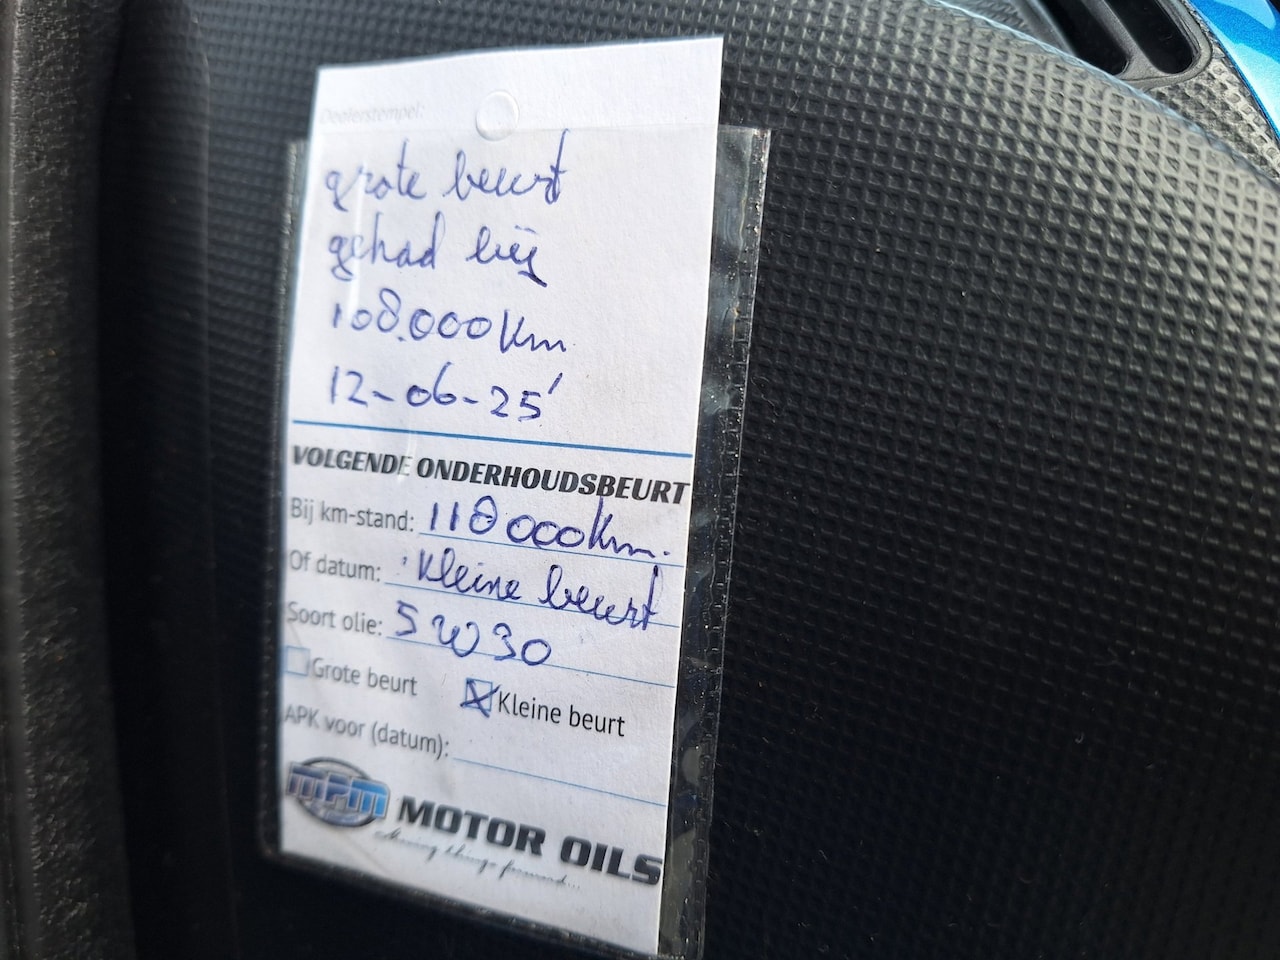 Dealerstempel:
grote beurt
gehad bij
108.000 Km
12-06-25'
VOLGENDE ONDERHOUDSBEURT
Bij km-stand: 118000Km.
Of datum: Kleine beurt
Soort olie: 5W30
Grote beurt Kleine beurt
APK voor (datum):
MPM MOTOR OILS
things forward...